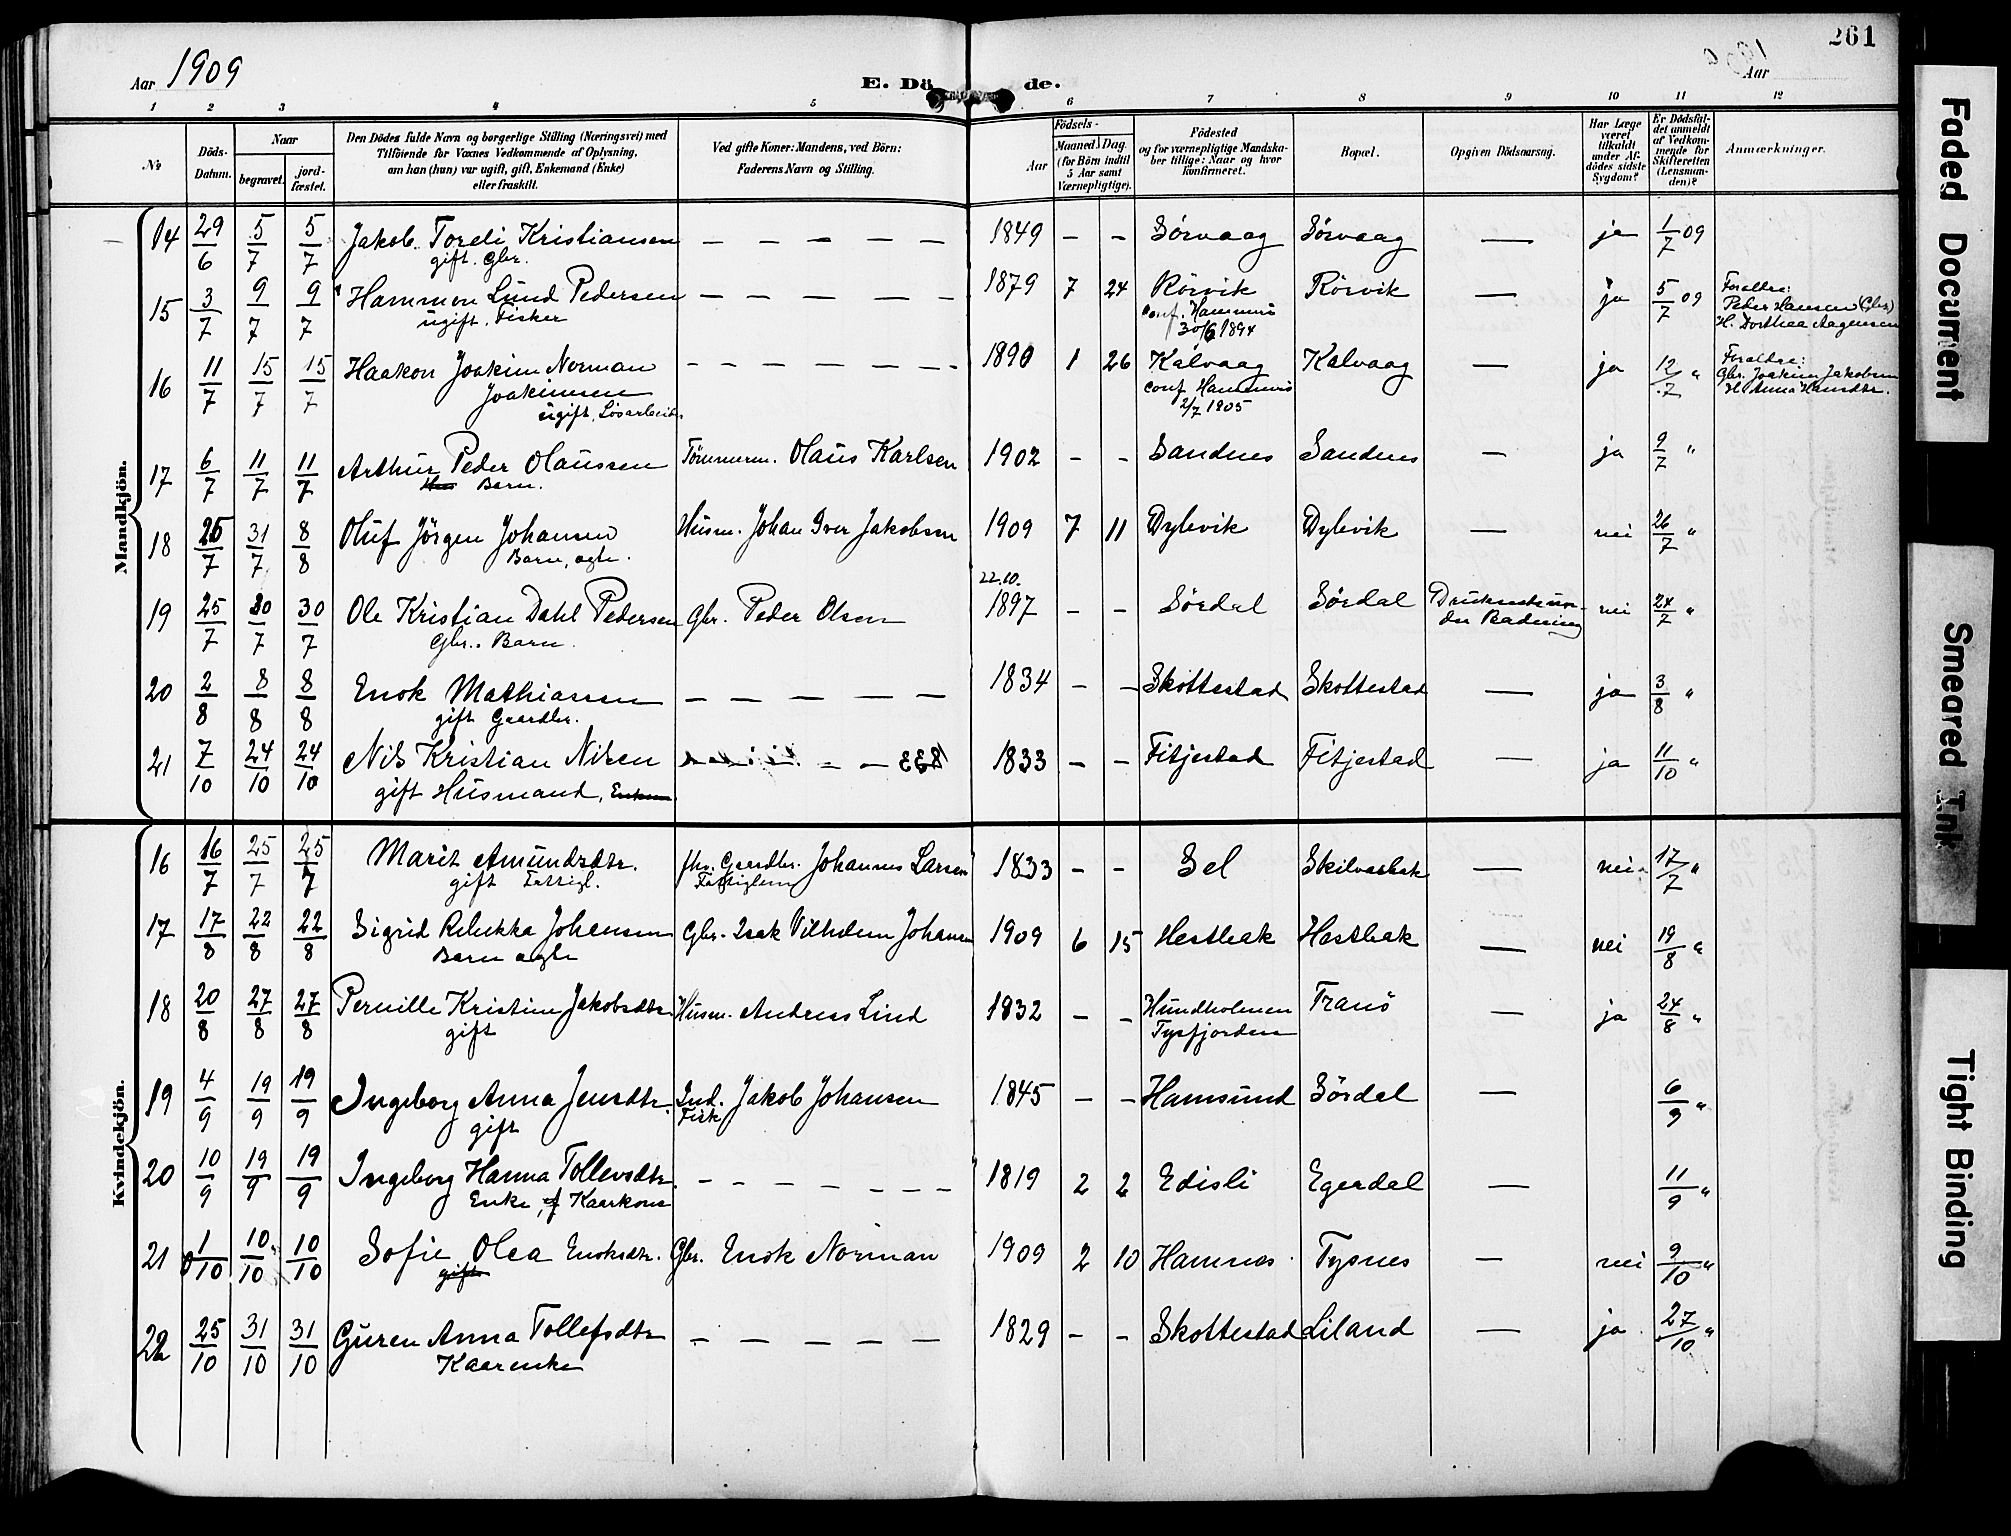 261
Aar 1909
E. Dö de.
Aar
1 2 3 4 5 6 7 8 9 10 11 12
No
Döds-Datum.
Naar
begravet.
jord-fæstet.
Den Dödes fulde Navn og borgerlige Stilling (Næringsvei) med
Tilföiende for Voxnes Vedkommende af Oplysning,
om han (hun) var ugift, gift, Enkemand (Enke)
eller fraskilt.
Ved gifte Koner: Mandens, ved Börn:
Faderens Navn og Stilling.
Födsels-
Aar
Maaned. Dag.
(for Börn indtil
5 Aar samt
Værnepligtige).
Födested
og for værnepligtige Mandska-
ber tillige: Naar og hvor
konfirmeret.
Bopæl.
Opgiven Dödsaarsag.
Har Læge
været
tilkaldt
under Af-
dödes sidste
Sygdom?
Er Dödsfal-
det anmeldt
af Vedkom-
mende for
Skifteretten
(Lensman-
den)?
Anmærkninger.
Mandkjön.
14 29/6 5/7 5/7 Jakob Toreli Kristiansen — — — — — 1849 – – Sörvaag Sörvaag — ja 1/7 09
gift. Gbr.
15 3/7 9/7 9/7 Hammon Lund Pedersen — — — — — 1879 7 24 Rörvik Rörvik — ja 5/7 09 Foraldre:
ugift. Fisker conf. Hammerö Peder Hansen (Gbr)
30/6 1894 H. Dorthea Aagensen
16 11/7 15/7 15/7 Haakon Joakim Norman – – – – – – – 1890 1 26 Kalvaag Kalvaag — ja 12/7 " Foraldre:
Joakimsen conf Hammerö Gbr. Joakim Jakobsen
ugift, Lösarbeid. 2/7 1905 H. Anna Hansdtr.
17 6/7 11/7 11/7 Arthur Peder Olaussen Tömmerm. Olaus Karlsen 1902 – – Sandnes Sandnes — ja 9/7 "
Barn.
18 25/7 31/7 8/8 Oluf Jörgen Johansen Husm. Johan Iver Jakobsen 1909 7 11 Dylevik Dylevik — nei 26/7 "
Barn, ægte.
22.10.
19 25/7 30/7 30/7 Ole Kristian Dahl Pedersen Gbr. Peder Olsen 1897 – – Sördal Sördal nei 24/7 "
Gbr. Barn. Badning
20 2/8 8/8 8/8 Enok Mathiassen — — — — — 1834 – – Skottestad Skottestad — ja 3/8 "
gift Gaardbr.
21 7/10 24/10 24/10 Nils Kristian Nilsen – – 1833 – – Fitjestad Fitjestad — ja 11/10 "
gift Husmand,
Kvindekjön.
16 16/7 25/7 25/7 Marit Amundsdtr. fhv. Gaardbr. Johannes Larsen 1833 – – Sel Skilvasbak — nei 17/7 "
gift Fattigl. Fattiglem
17 17/8 22/8 22/8 Sigrid Rebekka Johansen Gbr. Isak Vilhelm Johansen 1909 6 15 Hestbak Hestbak — nei 19/8 "
Barn ægte
18 20/8 27/8 27/8 Pernille Kristine Jakobsdtr. Husm. Andreas Lind 1832 – – Hundholmen Tranö — ja 24/8 "
gift Tysfjorden
19 4/9 19/9 19/9 Ingeborg Anna Jensdtr. Ind. Jakob Johansen 1845 – – Hamsund Sördal — 6/9 "
gift Fisk
20 10/9 19/9 19/9 Ingeborg Hanna Tollevsdtr. – – – – – – – 1819 2 2 Edisli Egerdal — 11/9 "
Enke, f. Kaarkone
21 1/10 10/10 10/10 Sofie Olea Enoksdtr. Gbr. Enok Norman 1909 2 10 Hamnes Tysnes — nei 9/10 "
gift
22 25/10 31/10 31/10 Guren Anna Tollefsdtr — — — — — 1829 – – Skottestad Liland — ja 27/10 "
Kaarenke
Faded Document
Smeared Ink
Tight Binding